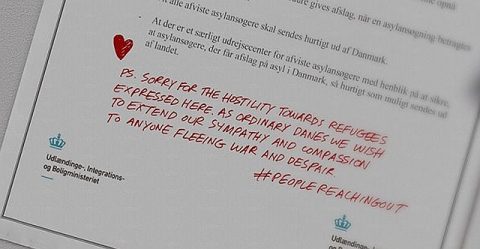 gives afslag, når en asylansøgning betragtes
alle afviste asylansøgere skal sendes hurtigt ud af Danmark.
- At der er et særligt udrejsecenter for afviste asylansøgere med henblik på at sikre,
at asylansøgere, der får afslag på asyl i Danmark, så hurtigt som muligt sendes ud
af landet.
PS. SORRY FOR THE HOSTILITY TOWARDS REFUGEES
EXPRESSED HERE. AS ORDINARY DANES WE WISH
TO EXTEND OUR SYMPATHY AND COMPASSION
TO ANYONE FLEEING WAR AND DESPAIR
#PEOPLEREACHINGOUT
Udlændinge-, Integrations-
og Boligministeriet
Udlændinge-, Integrations-